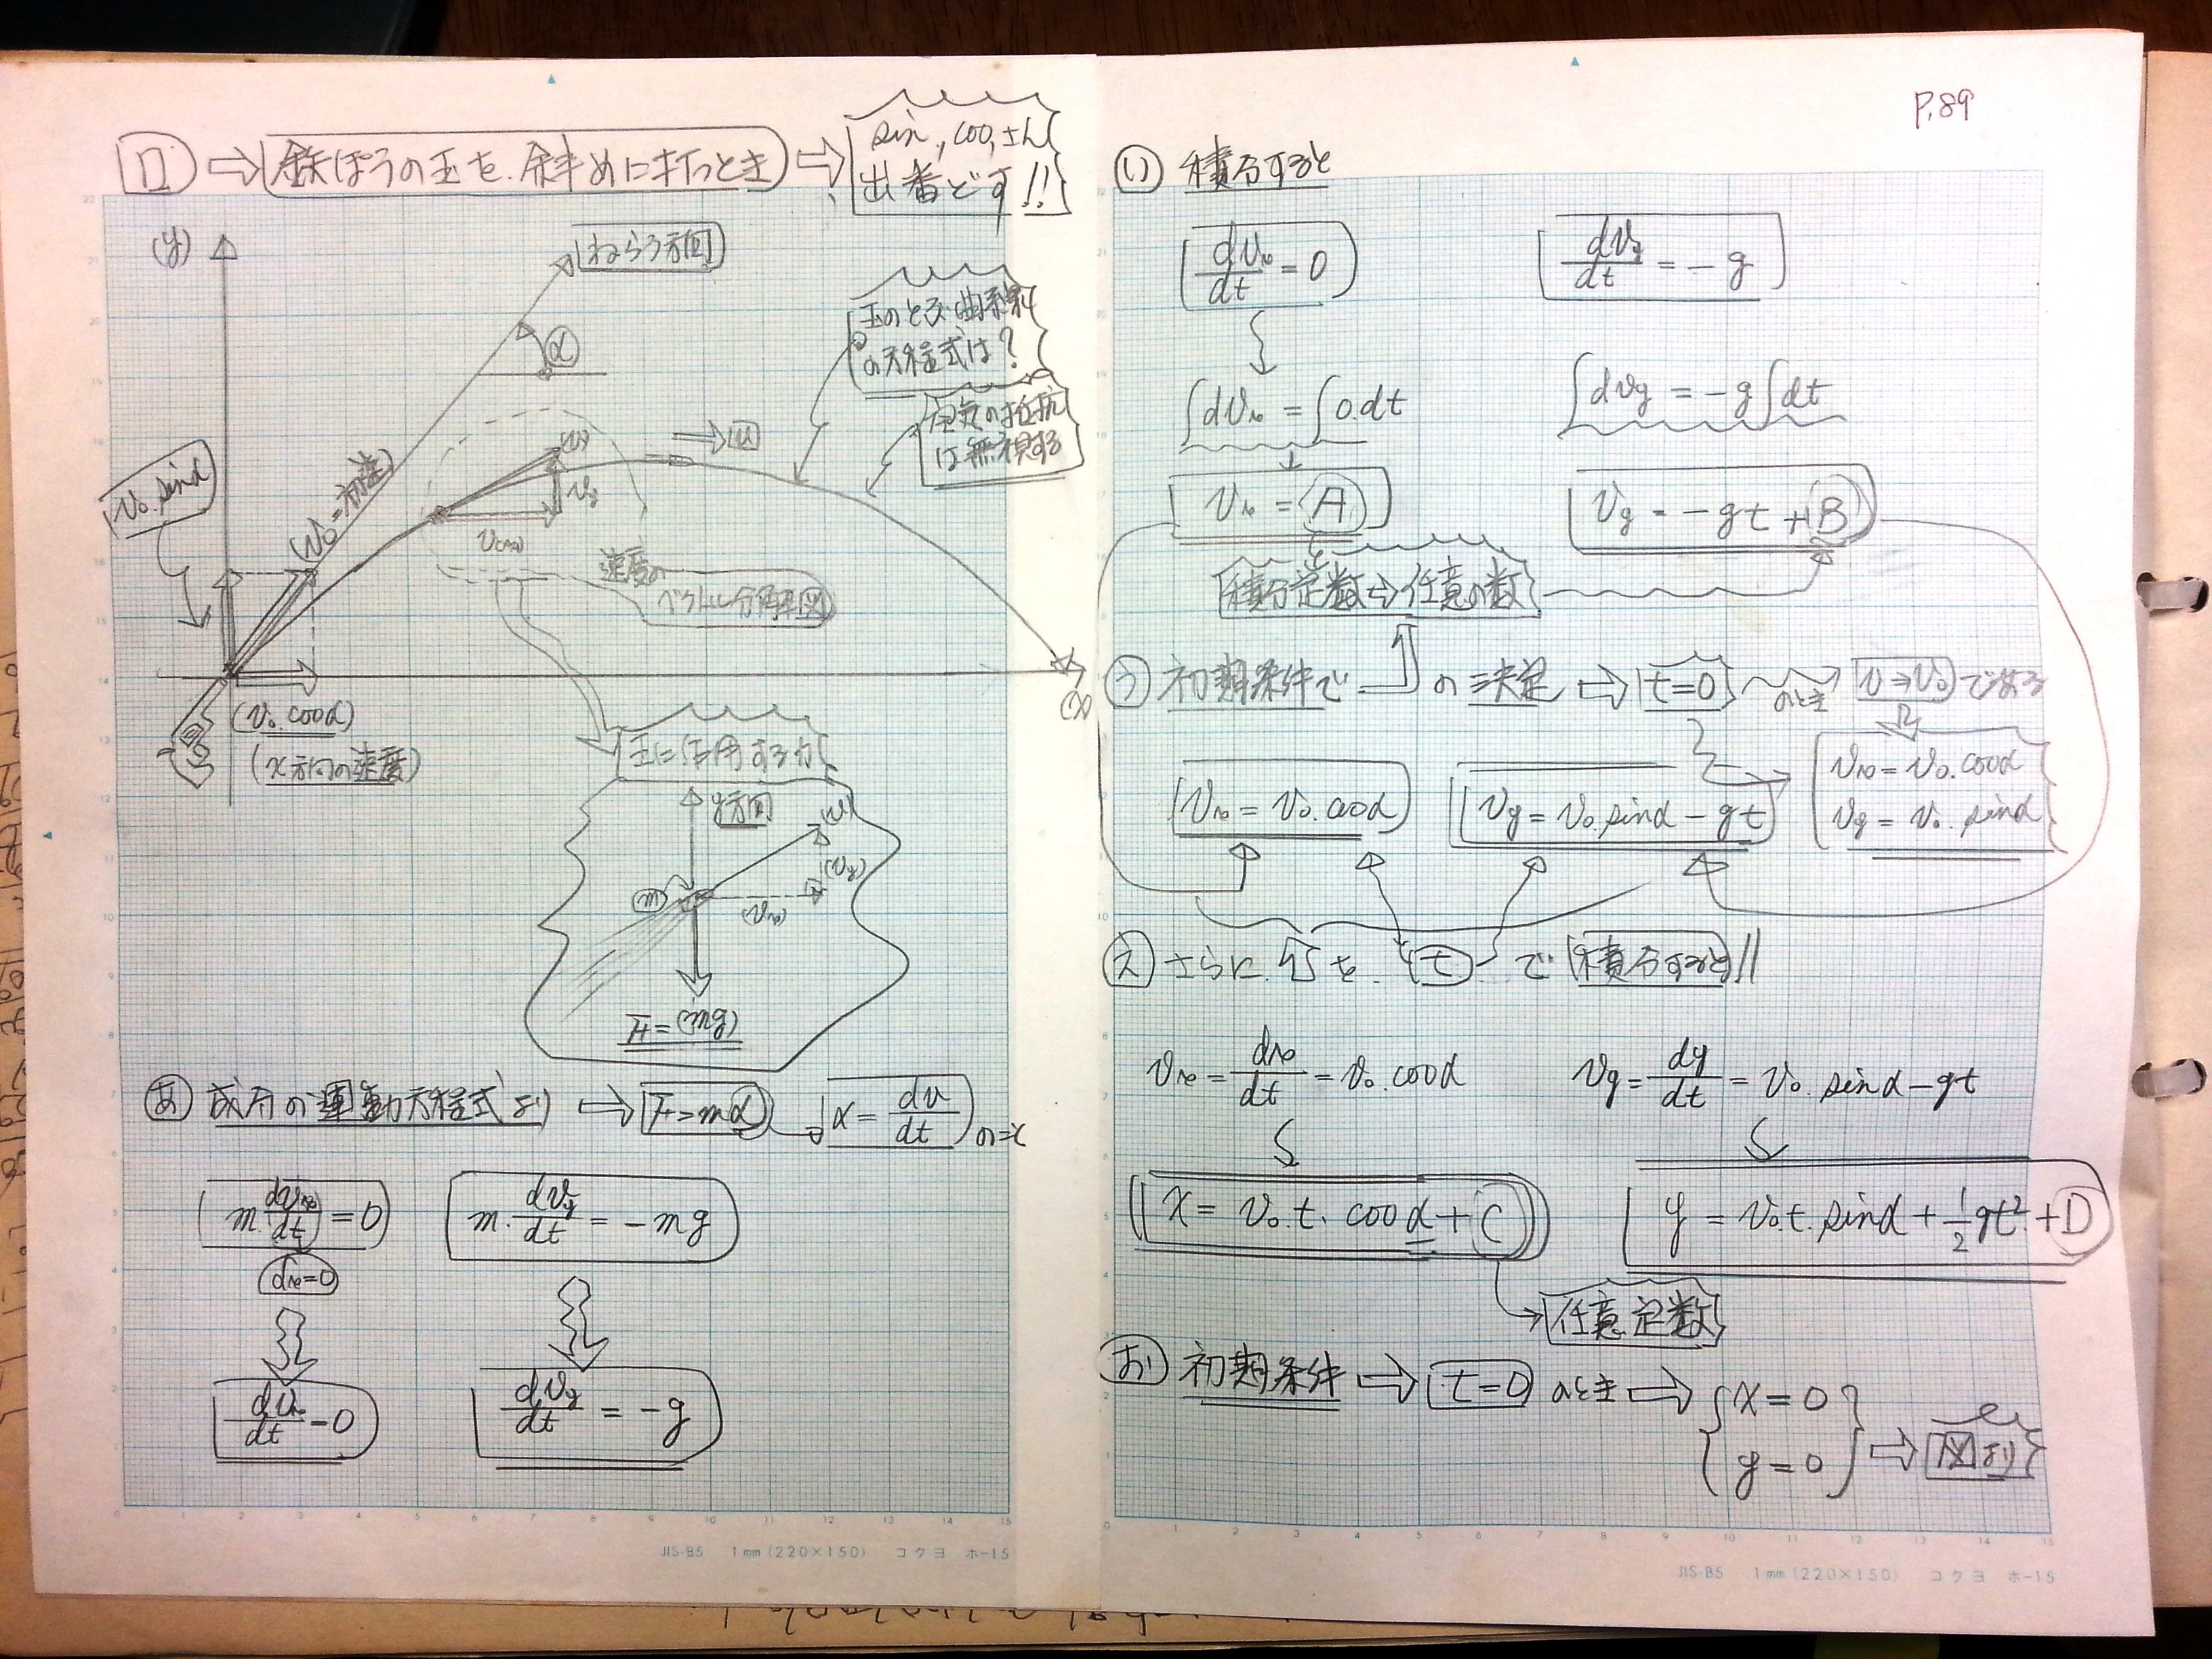 P.89
ロ ⇒ 鉄ぽうの玉を.斜めに打つとき ⇒ sin, cos, tan
出番どす!!
(y)
ねらう方向
α
玉のとぶ曲線
の方程式は?
空気の抵抗
は無視する
v₀.sinα
V₀=初速
速度の
ベクトル分解図
(v₀.cosα)
(x方向の速度)
(x)
玉に作用する力
y方向
(v)
(vy)
m
(vx)
F=(mg)
あ 成分の運動方程式より ⇒ F=mα → α = dv/dt のこと
m.dvx/dt = 0
m.dvy/dt = -mg
dx=0
dvx/dt = 0
dvy/dt = -g
JIS-B5 1mm(220×150) コクヨ ホ-15
い 積分すると
dvx/dt = 0
dvy/dt = -g
∫dvx = ∫0.dt
∫dvy = -g∫dt
vx = A
vy = -gt + B
積分定数⇒任意の数
う 初期条件で の決定 ⇒ t=0 のとき v⇒v₀ である
vx = v₀.cosα
vy = v₀.sinα - gt
vx = v₀.cosα
vy = v₀.sinα
え さらに を t で 積分すると//
vx = dx/dt = v₀.cosα
vy = dy/dt = v₀.sinα - gt
x = v₀.t.cosα + C
y = v₀t.sinα + 1/2 gt² + D
任意定数
お 初期条件 ⇒ t=0 のとき ⇒ { x=0
y=0 } ⇒ 図より
JIS-B5 1mm(220×150) コクヨ ホ-15